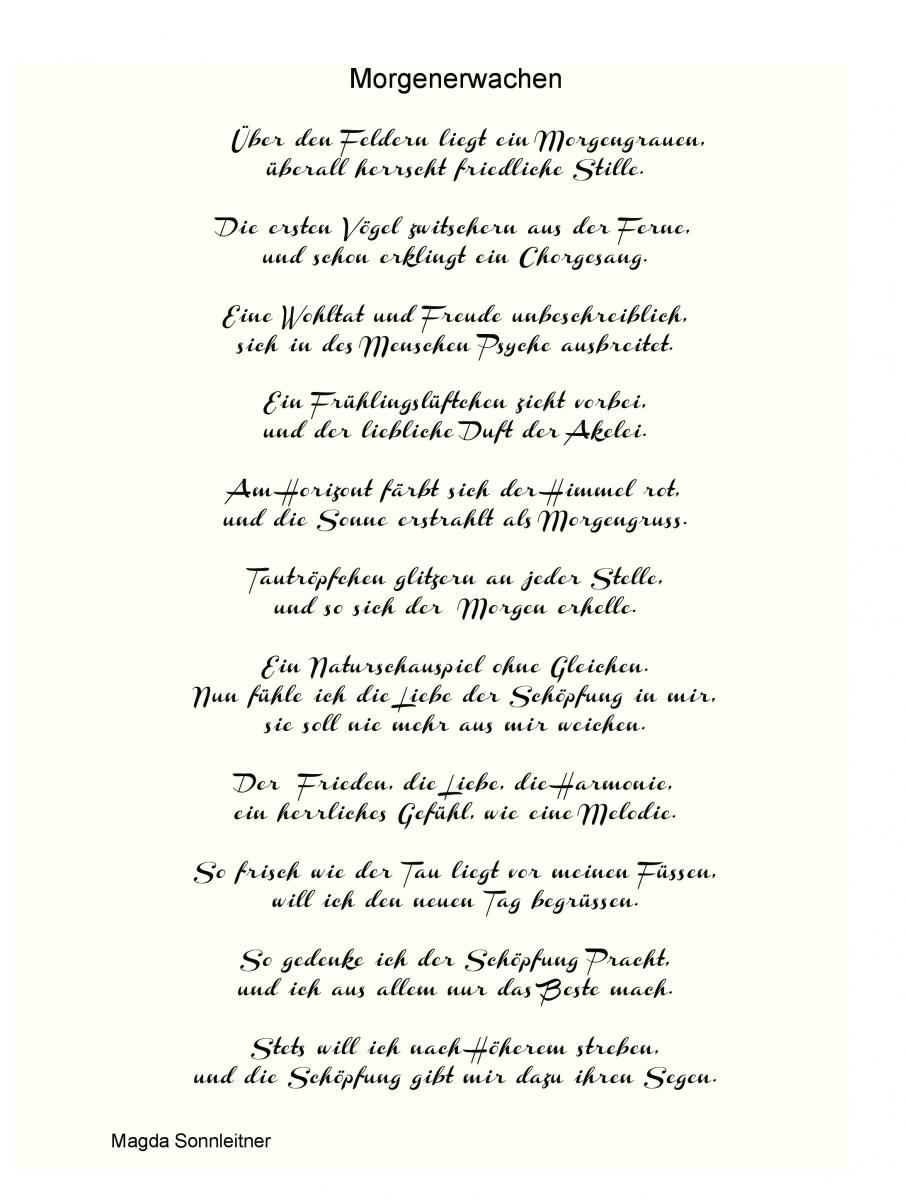 Morgenerwachen
Über den Feldern liegt ein Morgengrauen,
überall herrscht friedliche Stille.
Die ersten Vögel zwitschern aus der Ferne,
und schon erklingt ein Chorgesang.
Eine Wohltat und Freude unbeschreiblich,
sich in des Menschen Psyche ausbreitet.
Ein Frühlingslüftchen zieht vorbei,
und der liebliche Duft der Akelei.
Am Horizont färbt sich der Himmel rot,
und die Sonne erstrahlt als Morgengruss.
Tautröpfchen glitzern an jeder Stelle,
und so sich der Morgen erhelle.
Ein Naturschauspiel ohne Gleichen.
Nun fühle ich die Liebe der Schöpfung in mir,
sie soll nie mehr aus mir weichen.
Der Frieden, die Liebe, die Harmonie,
ein herrliches Gefühl, wie eine Melodie.
So frisch wie der Tau liegt vor meinen Füssen,
will ich den neuen Tag begrüssen.
So gedenke ich der Schöpfung Pracht,
und ich aus allem nur das Beste mach.
Stets will ich nach Höherem streben,
und die Schöpfung gibt mir dazu ihren Segen.
Magda Sonnleitner